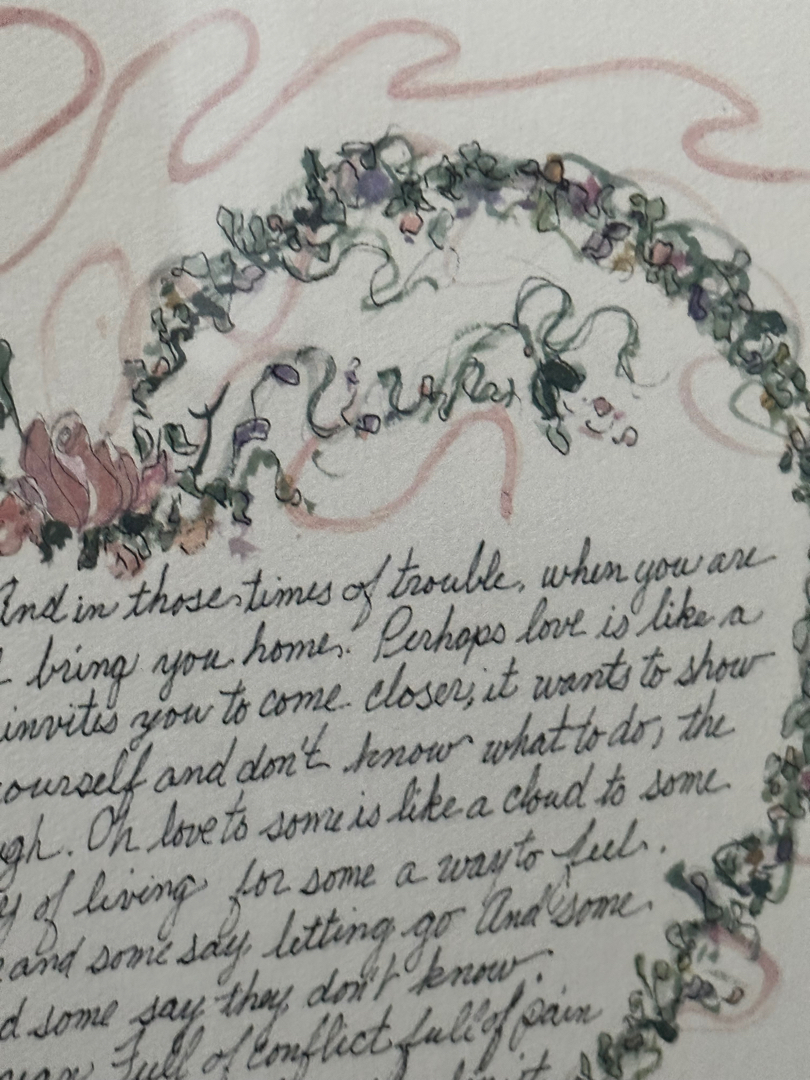 And in those times of trouble, when you are
bring you home. Perhaps love is like a
invites you to come closer, it wants to show
ourself and don't know what to do, the
gh. Oh love to some is like a cloud to some
of living for some a way to feel.
and some say letting go And some
some say they don't know.
Full of conflict full of pain